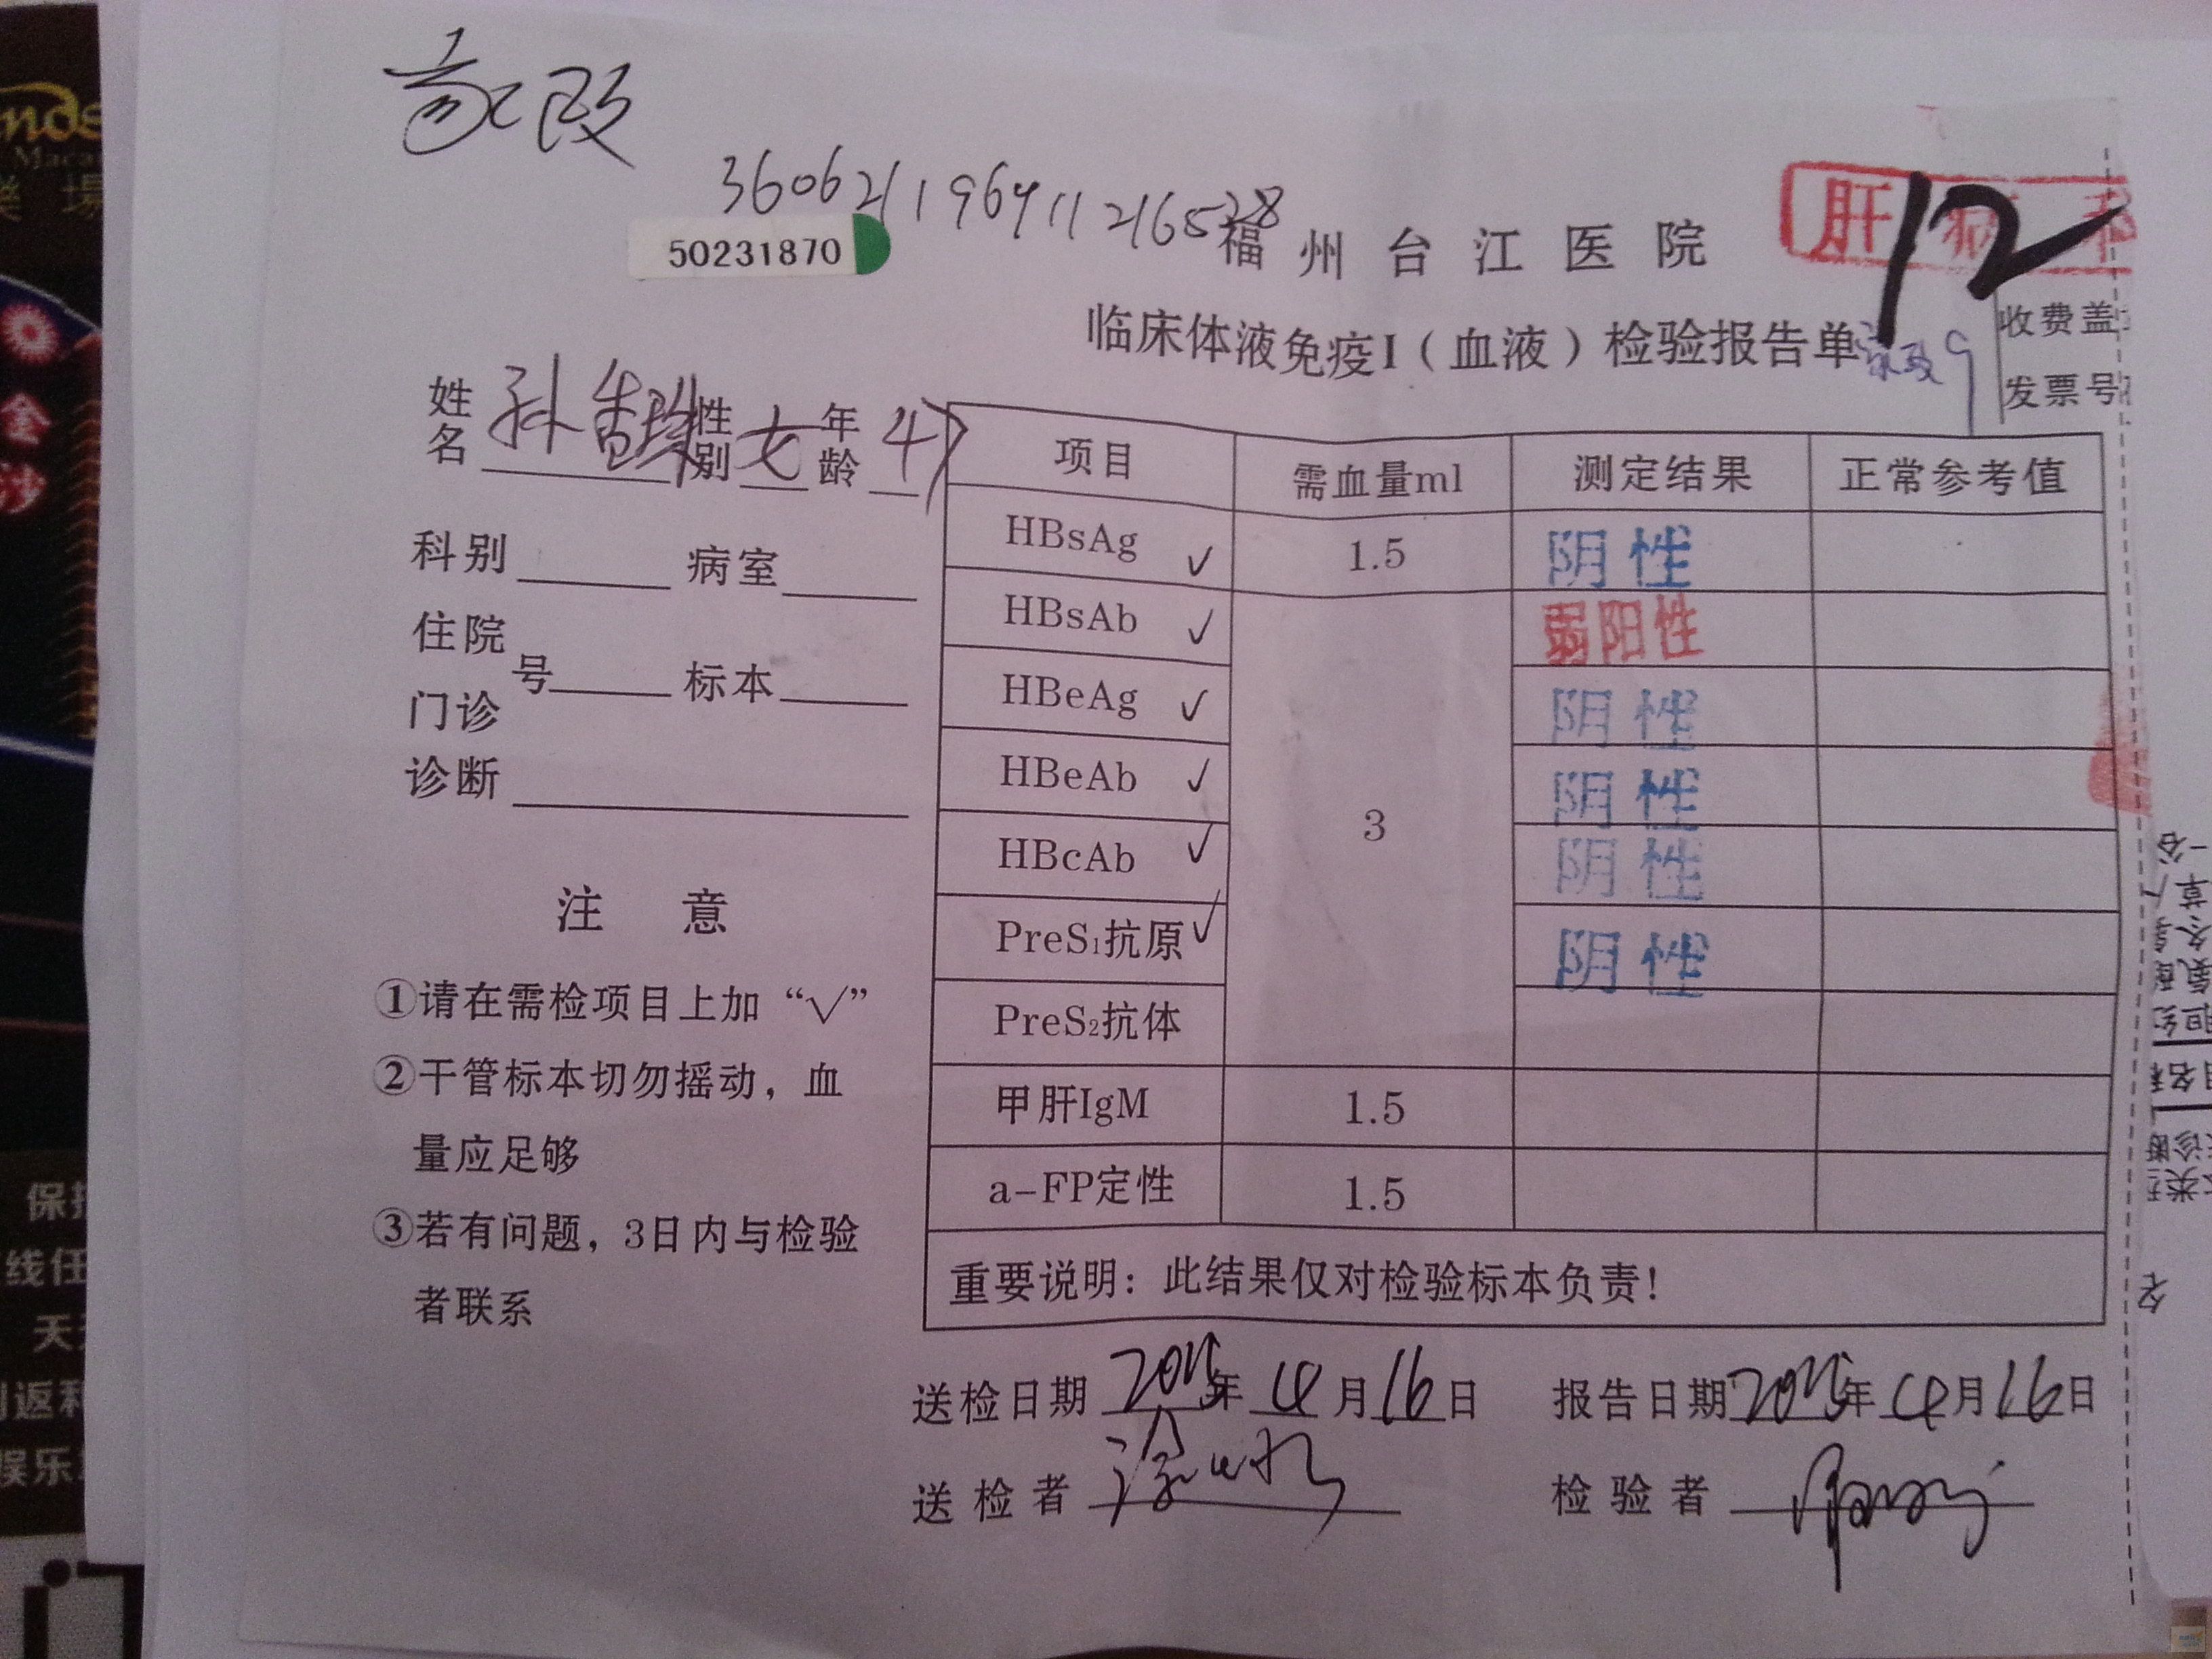 50231870
福州台江医院
肝病科
12
临床体液免疫I（血液）检验报告单
收费盖
发票号
姓名 孙 性别 女 年龄 47
科别 病室
住院
号 标本
门诊
诊断
注 意
①请在需检项目上加“√”
②干管标本切勿摇动，血
量应足够
③若有问题，3日内与检验
者联系
项目 需血量ml 测定结果 正常参考值
HBsAg √ 1.5 阴性
HBsAb √ 3 弱阳性
HBeAg √ 阴性
HBeAb √ 阴性
HBcAb √ 阴性
PreS₁抗原 √ 阴性
PreS₂抗体
甲肝IgM 1.5
a-FP定性 1.5
重要说明：此结果仅对检验标本负责！
送检日期 年 4月16日 报告日期 年 4月16日
送检者 检验者
金
沙